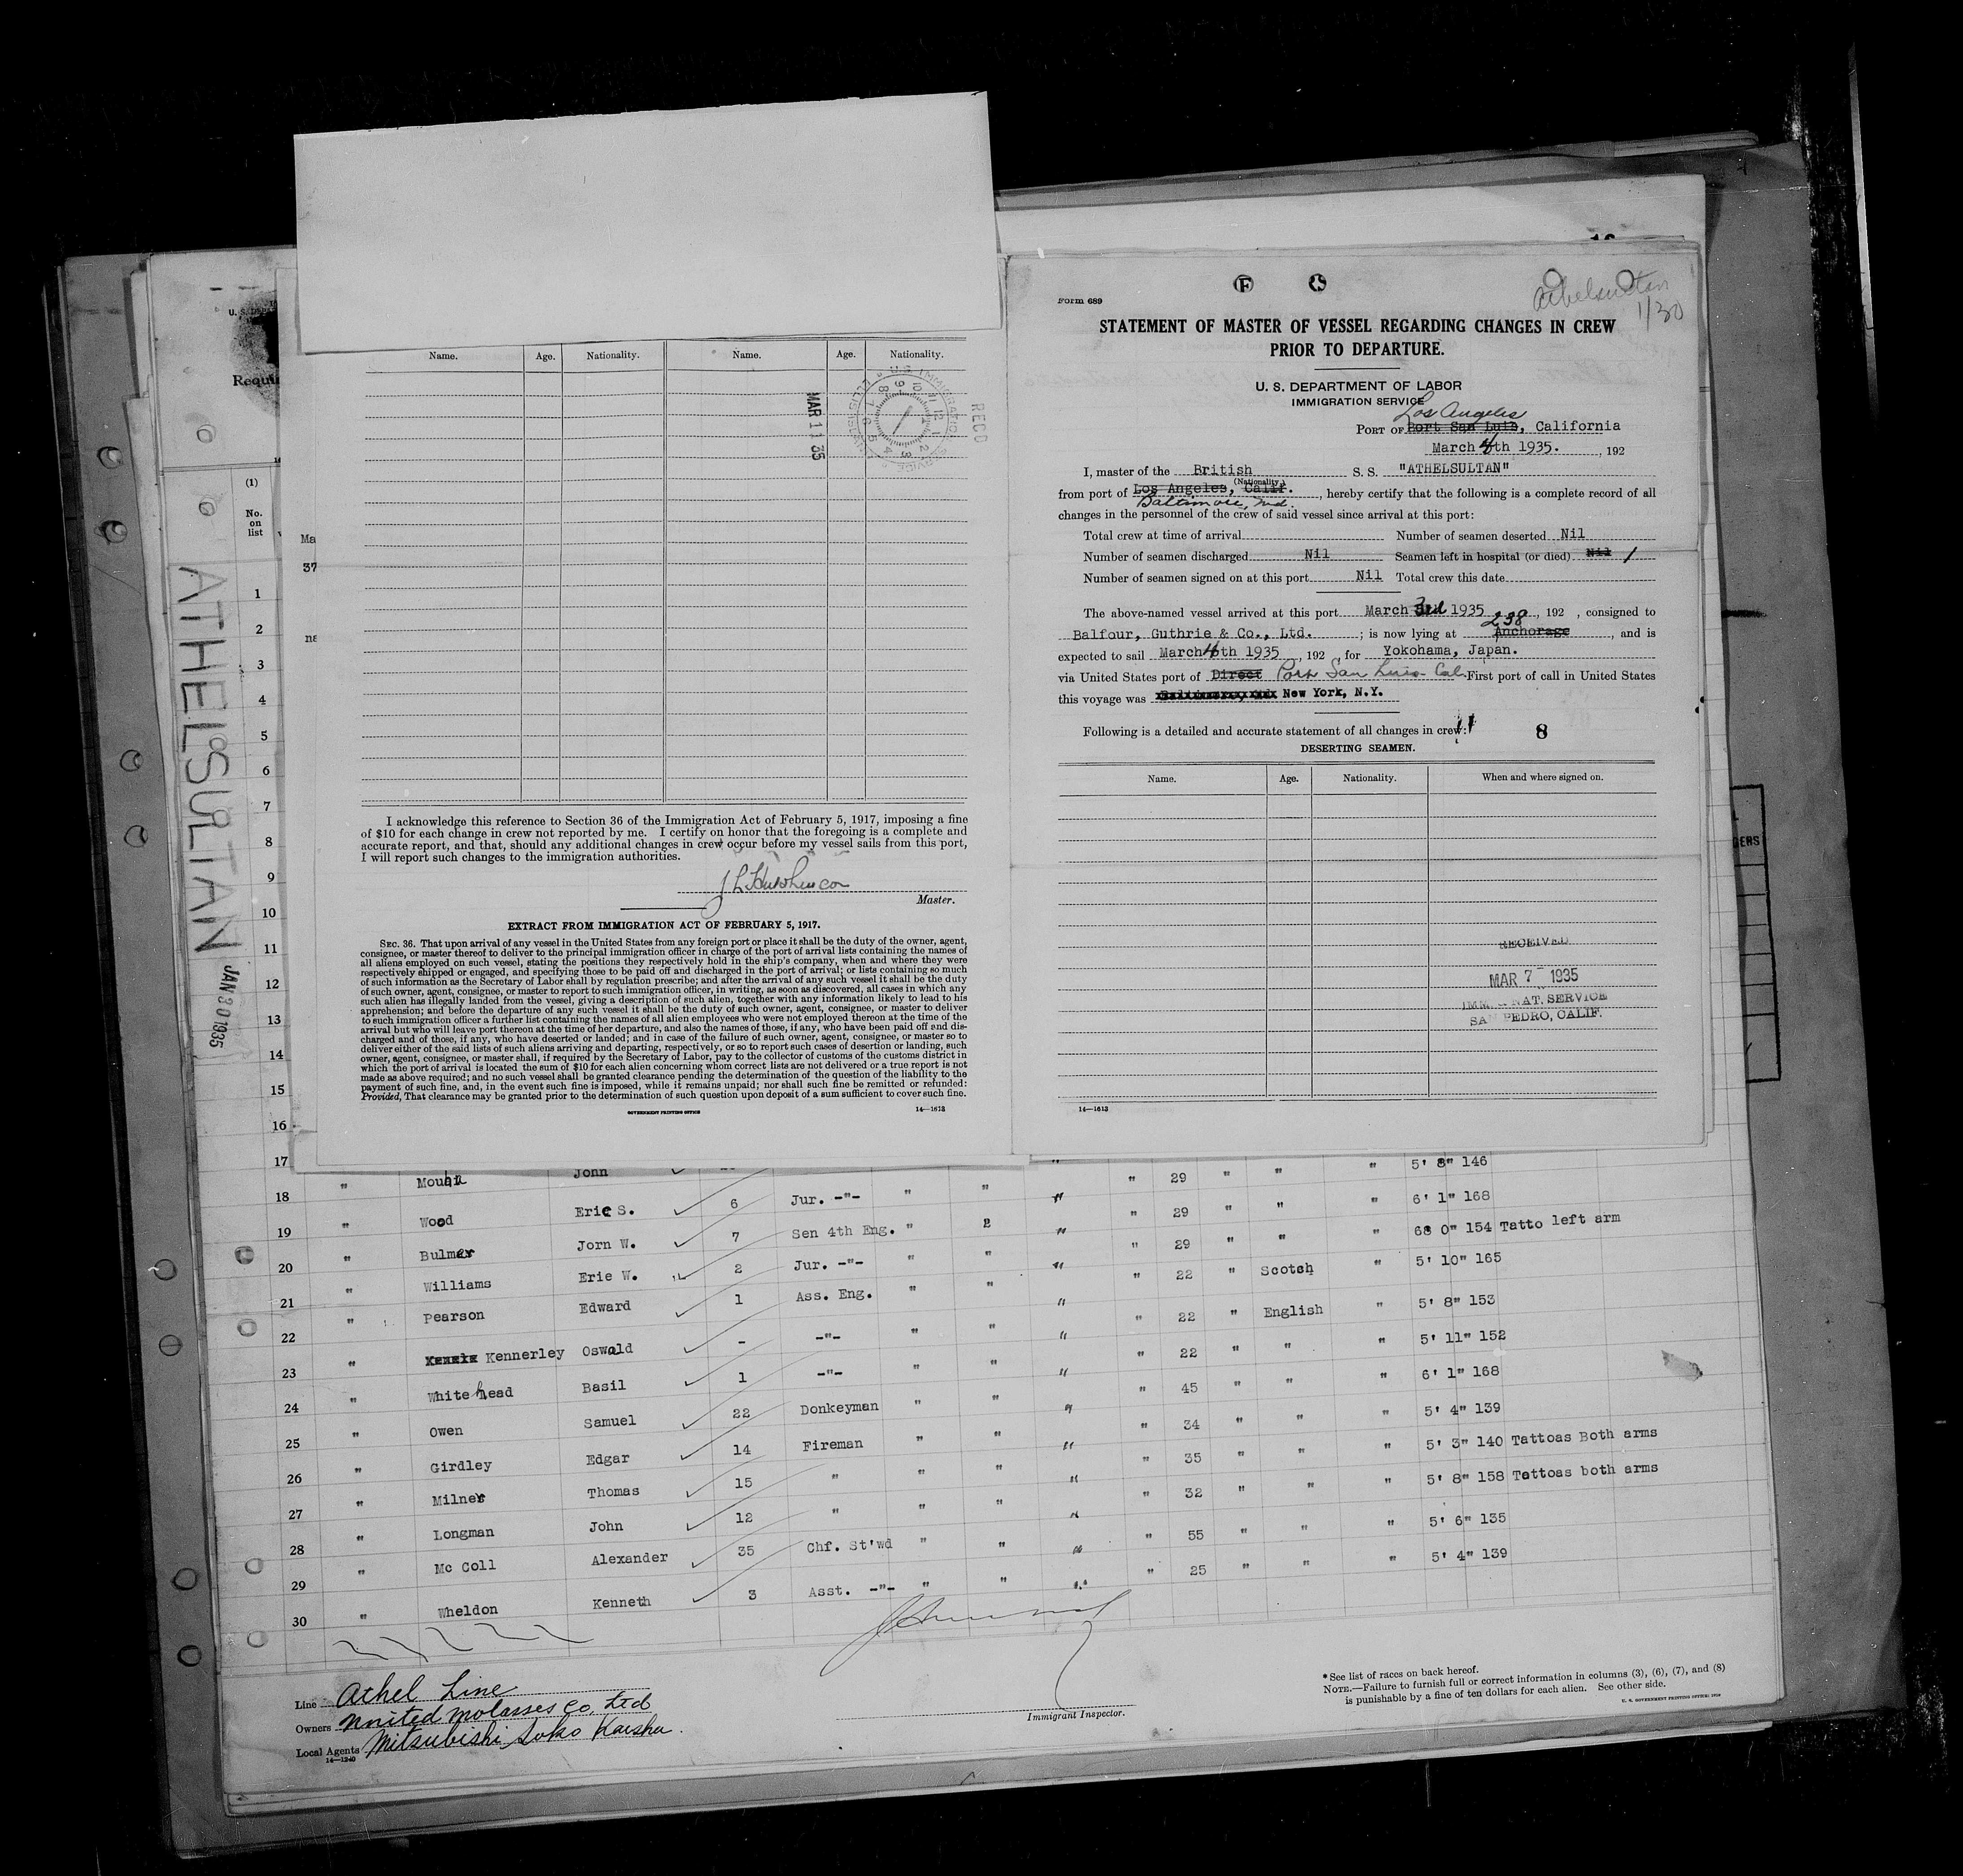 Form 689
Athelsultan
1/30
STATEMENT OF MASTER OF VESSEL REGARDING CHANGES IN CREW
PRIOR TO DEPARTURE.
U. S. DEPARTMENT OF LABOR
IMMIGRATION SERVICE
Los Angeles
PORT OF Port San Luis, California
March 4th 1935. , 192
I, master of the British S. S. "ATHELSULTAN"
(Nationality.)
from port of Los Angeles, Calif. , hereby certify that the following is a complete record of all
Baltimore, Md.
changes in the personnel of the crew of said vessel since arrival at this port:
Total crew at time of arrival Number of seamen deserted Nil
Number of seamen discharged Nil Seamen left in hospital (or died) Nil 1
Number of seamen signed on at this port Nil Total crew this date
The above-named vessel arrived at this port March 3rd 1935 , 192 , consigned to
238
Balfour, Guthrie & Co., Ltd. ; is now lying at Anchorage , and is
expected to sail March 4th 1935 , 192 , for Yokohama, Japan.
via United States port of Direct Port San Luis Cal. First port of call in United States
this voyage was New York, N.Y.
Following is a detailed and accurate statement of all changes in crew:
8
DESERTING SEAMEN.
Name. Age. Nationality. When and where signed on.
RECEIVED
MAR 7 - 1935
NAT. SERVICE
SAN PEDRO, CALIF.
14—1613
Name. Age. Nationality. Name. Age. Nationality.
MAR 11 35
U. S. IMMIGRATION SERVICE
RECD
I acknowledge this reference to Section 36 of the Immigration Act of February 5, 1917, imposing a fine
of $10 for each change in crew not reported by me. I certify on honor that the foregoing is a complete and
accurate report, and that, should any additional changes in crew occur before my vessel sails from this port,
I will report such changes to the immigration authorities.
Master.
EXTRACT FROM IMMIGRATION ACT OF FEBRUARY 5, 1917.
SEC. 36. That upon arrival of any vessel in the United States from any foreign port or place it shall be the duty of the owner, agent,
consignee, or master thereof to deliver to the principal immigration officer in charge of the port of arrival lists containing the names of
all aliens employed on such vessel, stating the positions they respectively hold in the ship's company, when and where they were
respectively shipped or engaged, and specifying those to be paid off and discharged in the port of arrival; or lists containing so much
of such information as the Secretary of Labor shall by regulation prescribe; and after the arrival of any such vessel it shall be the duty
of such owner, agent, consignee, or master to report to such immigration officer, in writing, as soon as discovered, all cases in which any
such alien has illegally landed from the vessel, giving a description of such alien, together with any information likely to lead to his
apprehension; and before the departure of any such vessel it shall be the duty of such owner, agent, consignee, or master to deliver
to such immigration officer a further list containing the names of all alien employees who were not employed thereon at the time of the
arrival but who will leave port thereon at the time of her departure, and also the names of those, if any, who have been paid off and dis-
charged and of those, if any, who have deserted or landed; and in case of the failure of such owner, agent, consignee, or master so to
deliver either of the said lists of such aliens arriving and departing, respectively, or so to report such cases of desertion or landing, such
owner, agent, consignee, or master shall, if required by the Secretary of Labor, pay to the collector of customs of the customs district in
which the port of arrival is located the sum of $10 for each alien concerning whom correct lists are not delivered or a true report is not
made as above required; and no such vessel shall be granted clearance pending the determination of the question of the liability to the
payment of such fine, and, in the event such fine is imposed, while it remains unpaid; nor shall such fine be remitted or refunded:
Provided, That clearance may be granted prior to the determination of such question upon deposit of a sum sufficient to cover such fine.
GOVERNMENT PRINTING OFFICE 14—1613
ATHELSULTAN
JAN 30 1935
(1)
No.
on
list
1
2
3
4
5
6
7
8
9
10
11
12
13
14
15
16
17
18 " John " 29 " " " 5' 8" 146
19 " Wood Eric S. 6 Jur. -"- " " " " 29 " " " 6' 1" 168
20 " Bulmer Jorn W. 7 Sen 4th Eng. " " " " 29 " " " 6 0" 154 Tatto left arm
21 " Williams Erie W. 2 Jur. -"- " " " " 22 " Scotch " 5' 10" 165
22 " Pearson Edward 1 Ass. Eng. " " " " 22 " English " 5' 8" 153
23 " Kennerley Oswald - -"- " " " " 22 " " " 5' 11" 152
24 " Whitehead Basil 1 -"- " " " " 45 " " " 6' 1" 168
25 " Owen Samuel 22 Donkeyman " " " " 34 " " " 5' 4" 139
26 " Girdley Edgar 14 Fireman " " " " 35 " " " 5' 3" 140 Tattoas Both arms
27 " Milner Thomas 15 " " " " " 32 " " " 5' 8" 158 Tattoas both arms
28 " Longman John 12 " " " " " 55 " " " 5' 6" 135
29 " Mc Coll Alexander 35 Chf. St'wd " " " " 25 " " " 5' 4" 139
30 " Wheldon Kenneth 3 Asst. -"- " " "
Line Athel Line
Owners United Molasses Co. Ltd
Local Agents Mitsubishi Soko Kaisha.
14—1240
Immigrant Inspector.
* See list of races on back hereof.
NOTE.—Failure to furnish full or correct information in columns (3), (6), (7), and (8)
is punishable by a fine of ten dollars for each alien. See other side.